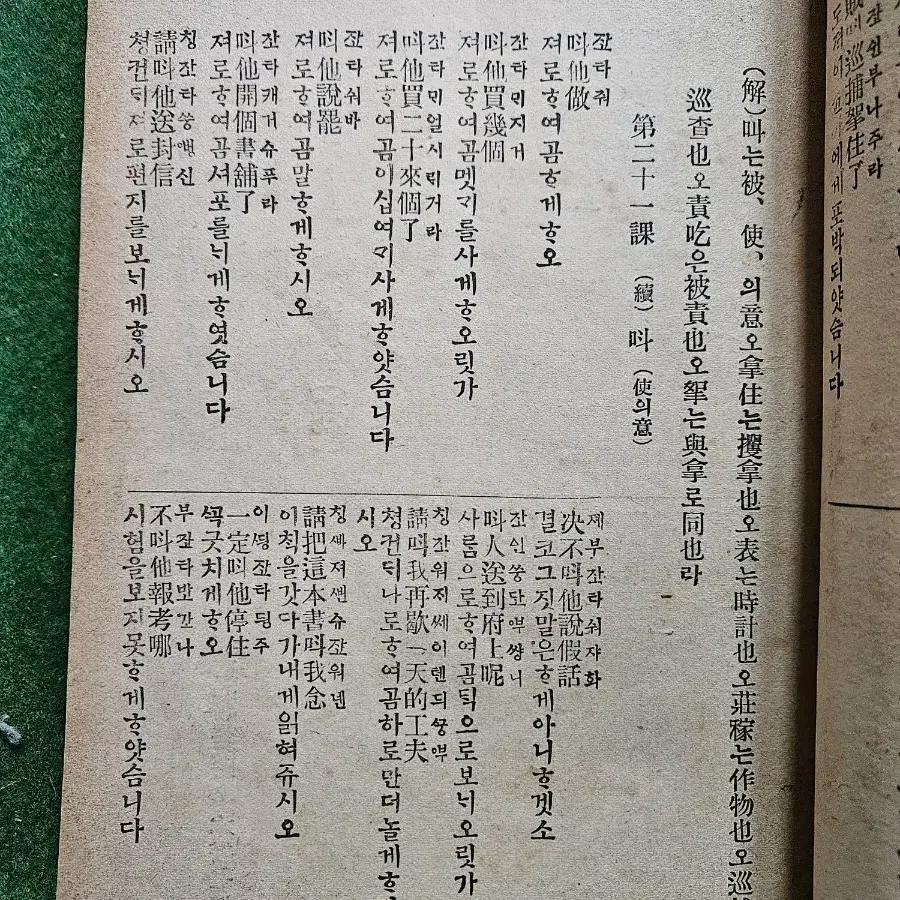 잔쉰부나주라
賊叫巡捕拏住了
에게포박되얏슴니다
(解)叫는被、使、의意오拿住는攫拿也오表는時計也오莊稼는作物也오巡
巡查也오責吃은被責也오拏는與拿로同也라
第二十一課 (續) 叫 (使의意)
쟌타줘
叫他做
져로ᄒᆞ여곰ᄒᆞ게ᄒᆞ오
쟌타믜지거
叫他買幾個
져로ᄒᆞ여곰몟ᄀᆡ를사게ᄒᆞ오릿가
쟌타믜얼시ᄅᆡ거라
叫他買二十來個了
져로ᄒᆞ여곰이십여ᄀᆡ사게ᄒᆞ얏슴니다
쟌타숴바
叫他說罷
져로ᄒᆞ여곰말ᄒᆞ게ᄒᆞ시오
쟌타캐거슈푸라
叫他開個書舖了
져로ᄒᆞ여곰셔포를ᄂᆡ게ᄒᆞ엿슴니다
칭쟌타쑹ᅋᅢᆼ신
請叫他送封信
쳥컨ᄃᆡ져로편지를보ᄂᆡ게ᄒᆞ시오
졔부쟌타쉬쟈화
决不叫他說假話
결코그짓말은ᄒᆞ게아니ᄒᆞ겟소
쟌인쑹닾ᅋᅮ썅니
叫人送到府上呢
사ᄅᆞᆷ으로ᄒᆞ여곰ᄃᆡᆨ으로보ᄂᆡ오릿가
請叫我再歇一天的工夫
쳥컨ᄃᆡ나로ᄒᆞ여곰하로만더놀게ᄒᆞ
시오
칭쌔져쎈슈쟌워녠
請把這本書叫我念
이ᄎᆡᆨ을갓다가내게읽혀쥬시오
이띵쟌타팅주
一定叫他停住
ᄭᅩᆨ긋치게ᄒᆞ오
부쟌타밮칸나
不叫他報考哪
시험을보지못ᄒᆞ게ᄒᆞ얏슴니다